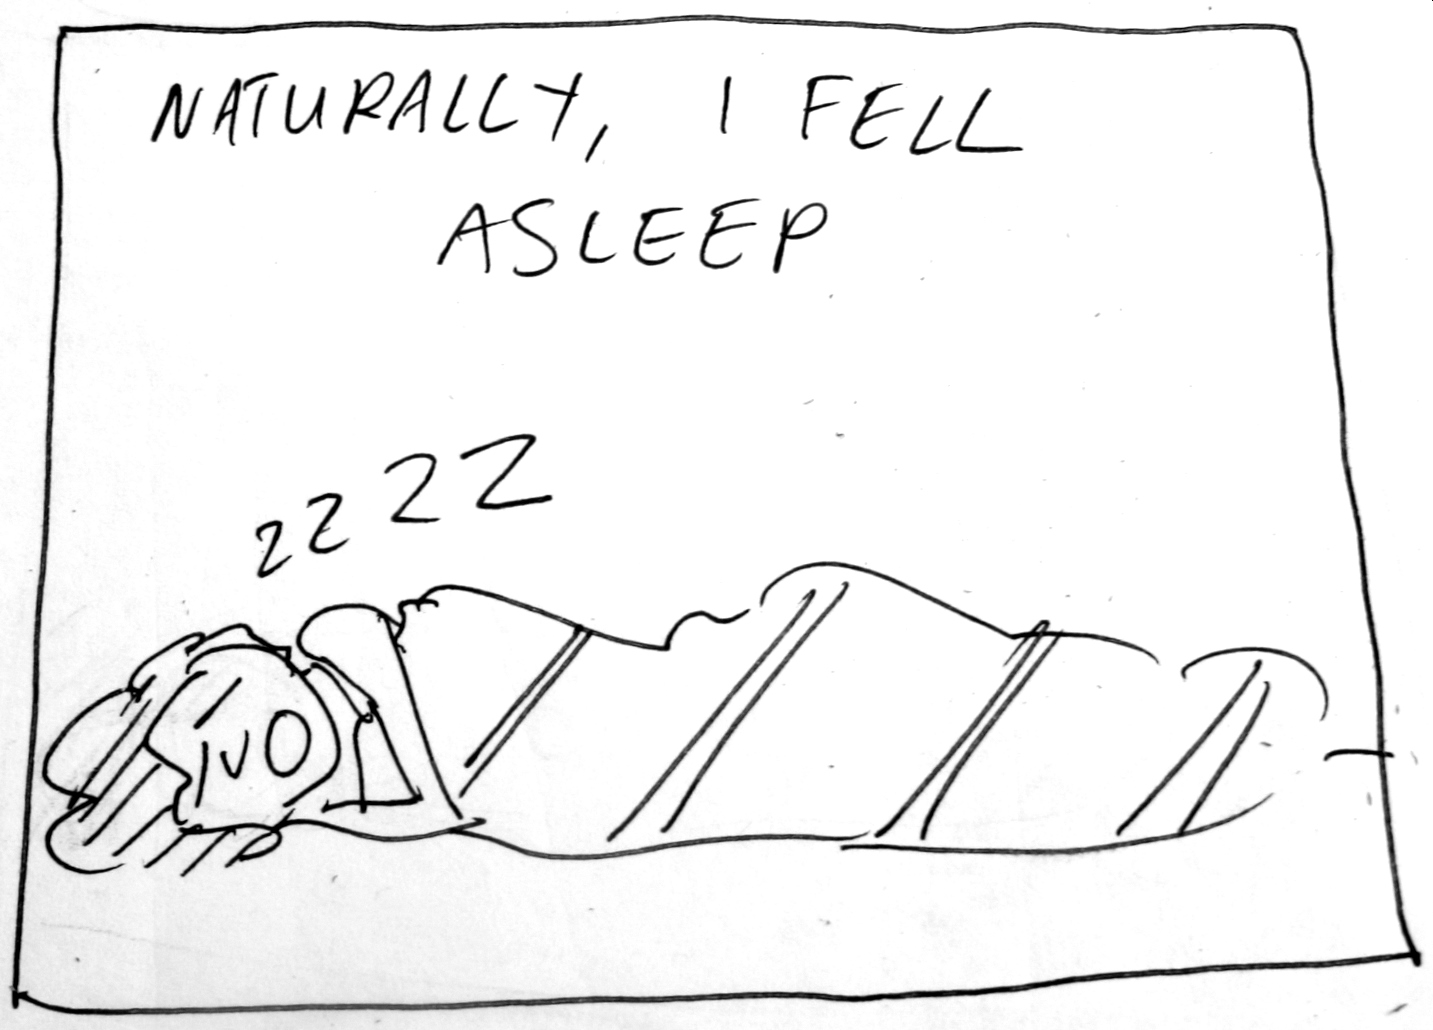 NATURALLY, I FELL
ASLEEP
zzzz
IVO